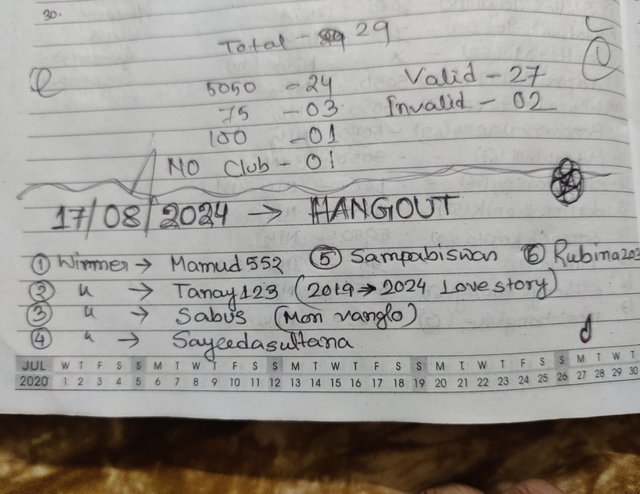 30.
Total - 29
5050 - 24 Valid - 27
75 - 03 Invalid - 02
100 - 01
NO Club - 01
17/08/2024 → HANGOUT
① Winner → Mamud552 ⑤ Sampabiswan ⑥ Rubina202
② " → Tanay123 (2019→2024 Love story)
③ " → Sabus (Mon vanglo)
④ " → Sayeedasultana
JUL W T F S S M T W T F S S M T W T F S S M T W T F S S M T W T
2020 1 2 3 4 5 6 7 8 9 10 11 12 13 14 15 16 17 18 19 20 21 22 23 24 25 26 27 28 29 30